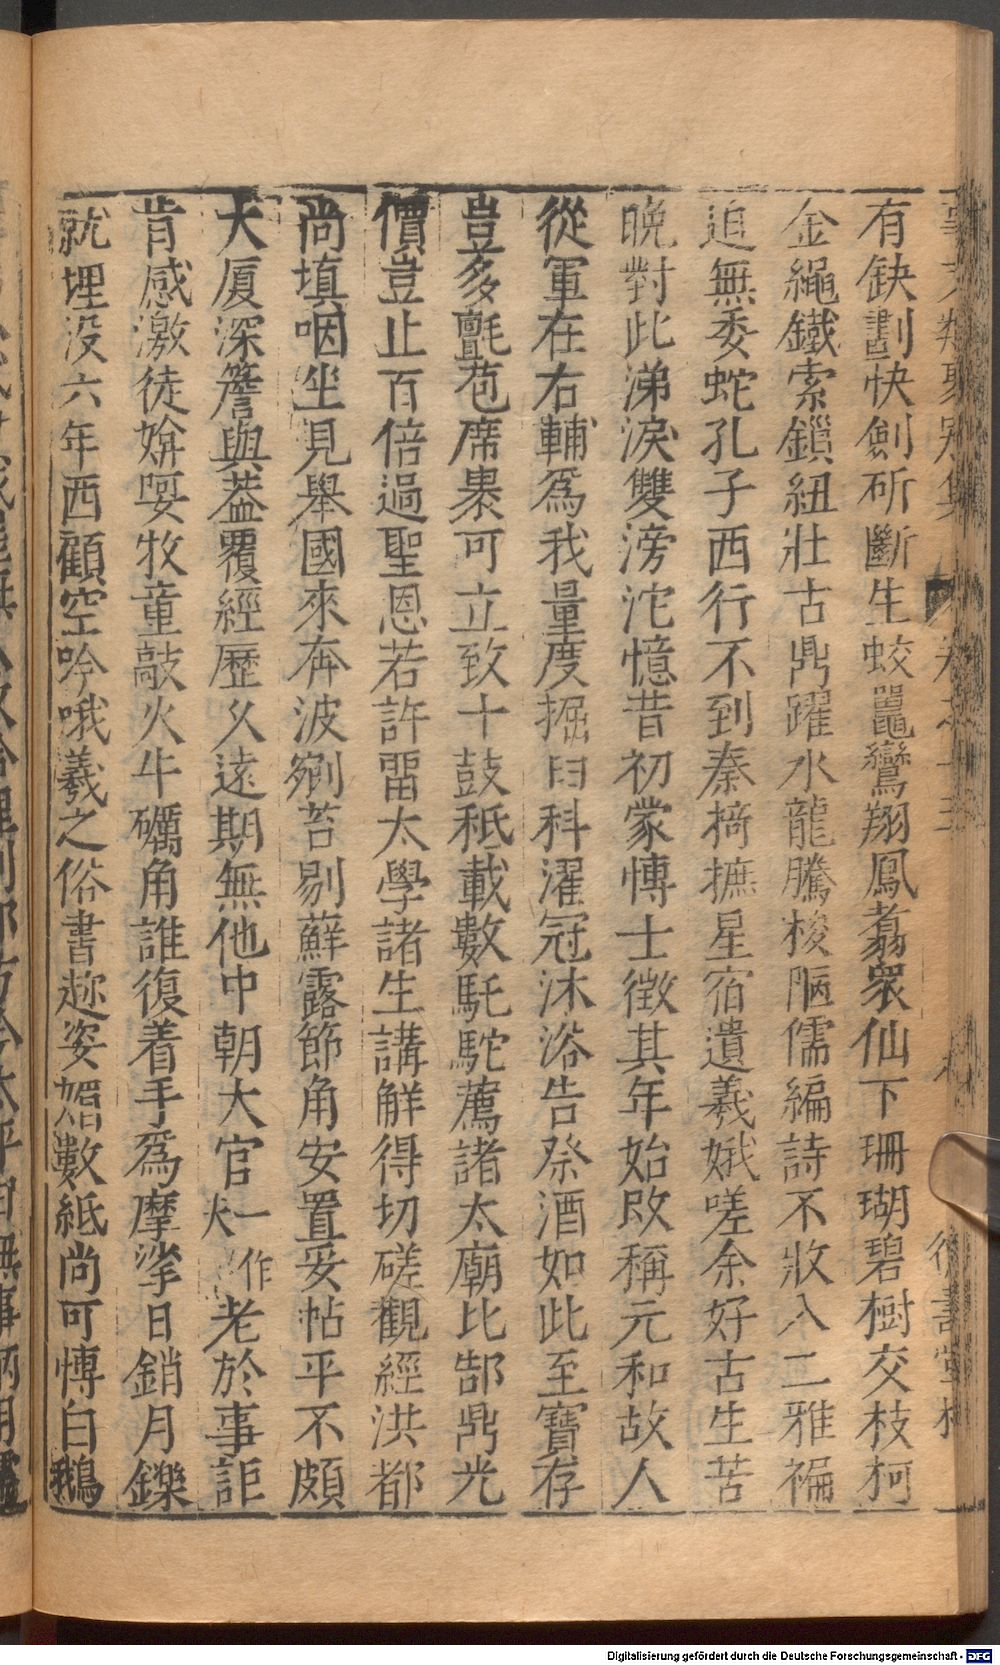 有缺畫快劍斫斷生蛟鼉鸞翔鳳翥衆仙下珊瑚碧樹交枝柯
金繩鐵索鎖紐壯古鼎躍水龍騰梭陋儒編詩不收入二雅褊
迫無委蛇孔子西行不到秦掎摭星宿遺羲娥嗟余好古生苦
晚對此涕淚雙滂沱憶昔初蒙博士徵其年始改稱元和故人
從軍在右輔爲我量度掘臼科濯冠沐浴告祭酒如此至寶存
豈多氈苞席裹可立致十鼓秪載數馲駝薦諸太廟比郜鼎光
價豈止百倍過聖恩若許畱太學諸生講解得切磋觀經洪都
尚填咽坐見舉國來奔波剜苔剔蘚露節角安置妥帖平不頗
大厦深簷與葢覆經歷久遠期無他中朝大官一作老於事詎
肯感激徒媕婀牧童敲火牛礪角誰復着手爲摩挲日銷月鑠
就埋没六年西顧空吟哦羲之俗書趂姿媚數紙尚可博白鵝
Digitalisierung gefördert durch die Deutsche Forschungsgemeinschaft - DFG